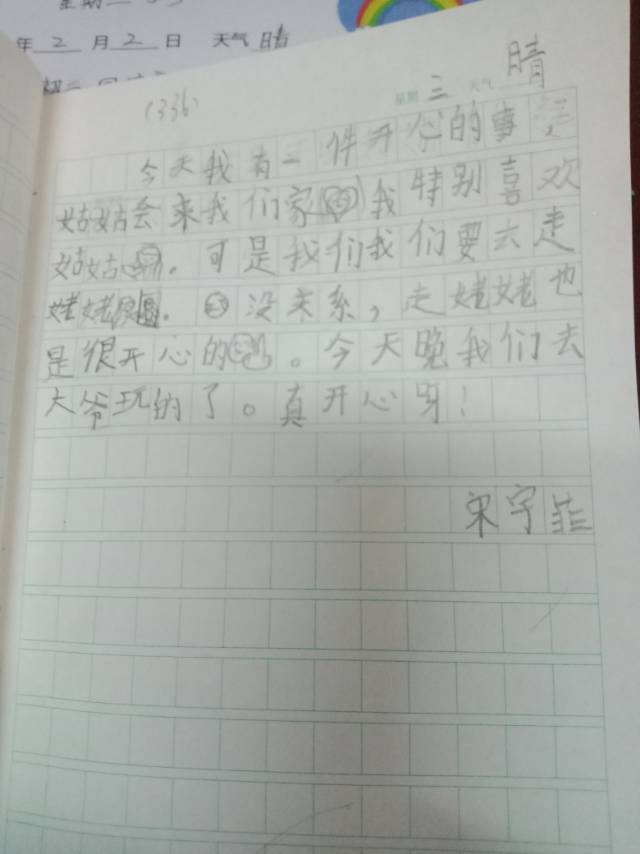 星期二
年 2 月 2 日 天气 晴
(336)
星期 三 天气 晴
今天我有一件开心的事,
姑姑会来我们家我特别喜欢
姑姑。可是我们我们要去走
姥姥。没关系,走姥姥也
是很开心的。今天晚我们去
大爷玩纳了。真开心呀!
宋宇菲